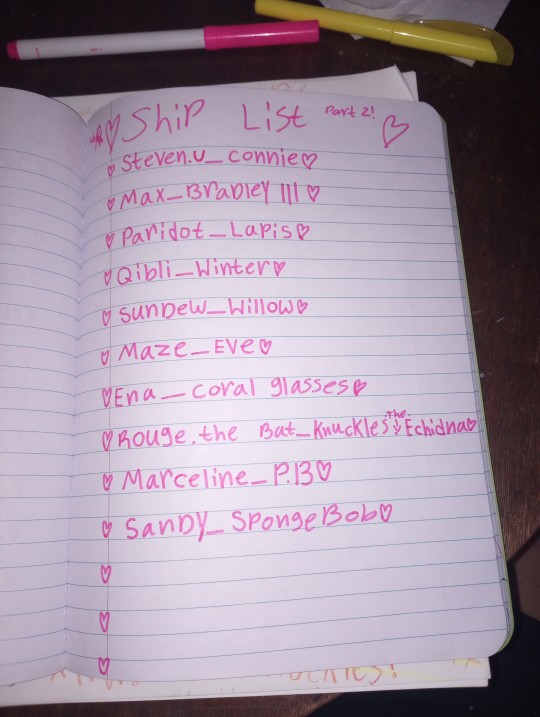 ♡ Ship List Part 2! ♡
♡ Steven.U_connie♡
♡ Max_Bradley III ♡
♡ Paridot_Lapis♡
♡ Qibli_Winter♡
♡ SunDew_Willow♡
♡ Maze_Eve♡
♡ Ena_coral glasses♡
♡ Rouge.the Bat_Knuckles The Echidna♡
♡ Marceline_P.B♡
♡ Sandy_SpongeBob♡
♡
♡
♡